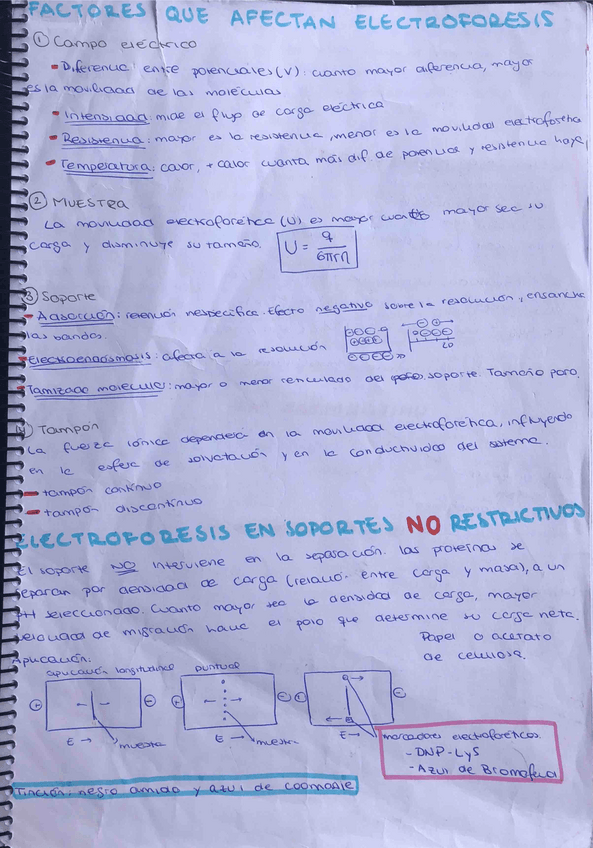 FACTORES QUE AFECTAN ELECTROFORESIS
① Campo eléctrico
- Diferencia entre potenciales (V): cuanto mayor diferencia, mayor
es la movilidad de las moléculas
- Intensidad: mide el flujo de carga eléctrica
- Resistencia: mayor es la resistencia, menor es la movilidad electroforética
- Temperatura: calor, + calor cuanta más dif. de potencial y resistencia haya
② MUESTRA
La movilidad electroforética (U) es mayor cuanto mayor sea su
carga y disminuye su tamaño. U = q / 6πrη
③ Soporte
- Adsorción: retención inespecífica. Efecto negativo sobre la resolución, ensancha
las bandas.
- Electroendosmosis: afecta a la resolución
- Tamizado molecular: mayor o menor reticulado del soporte. Tamaño poro.
④ Tampón
La fuerza iónica dependerá en la movilidad electroforética, influyendo
en la esfera de solvatación y en la conductividad del sistema.
- tampón continuo
- tampón discontinuo
ELECTROFORESIS EN SOPORTES NO RESTRICTIVOS
El soporte NO interviene en la separación. las proteínas se
separan por densidad de carga (relación entre carga y masa), a un
pH seleccionado. Cuanto mayor sea la densidad de carga, mayor
velocidad de migración hacia el polo que determine su carga neta.
Papel o acetato
de celulosa.
Aplicación:
aplicación longitudinal puntual
+ - + - + -
E → muestra E → muestra E →
marcadores electroforéticos.
- DNP-Lys
- Azul de Bromofenol
Tinción: negro amido y azul de coomassie